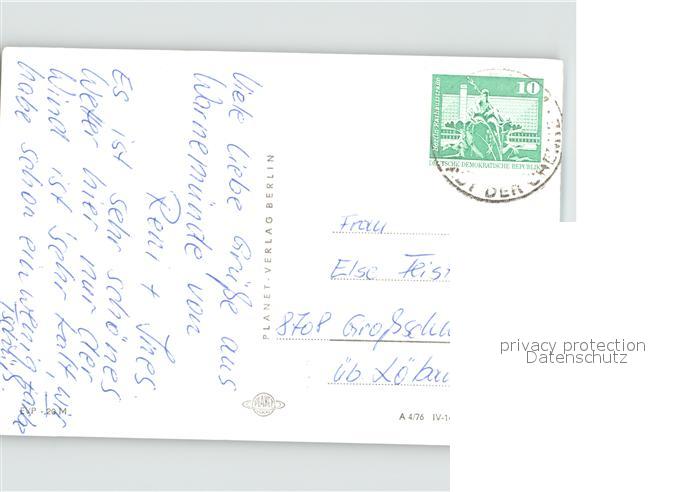 Viele liebe Grüße aus
Warnemünde von
Reni + Ines.
Es ist sehr schönes
Wetter hier nur der
Wind ist sehr kalt, wir
habe schon ein wenig Farbe
Tschüß.
PLANET-VERLAG BERLIN
10
DEUTSCHE DEMOKRATISCHE REPUBLIK
DER CHEMIE
Frau
Else
8708
üb Löbau
EVP
M
PLANET
A 4/76 IV-14
privacy protection
Datenschutz